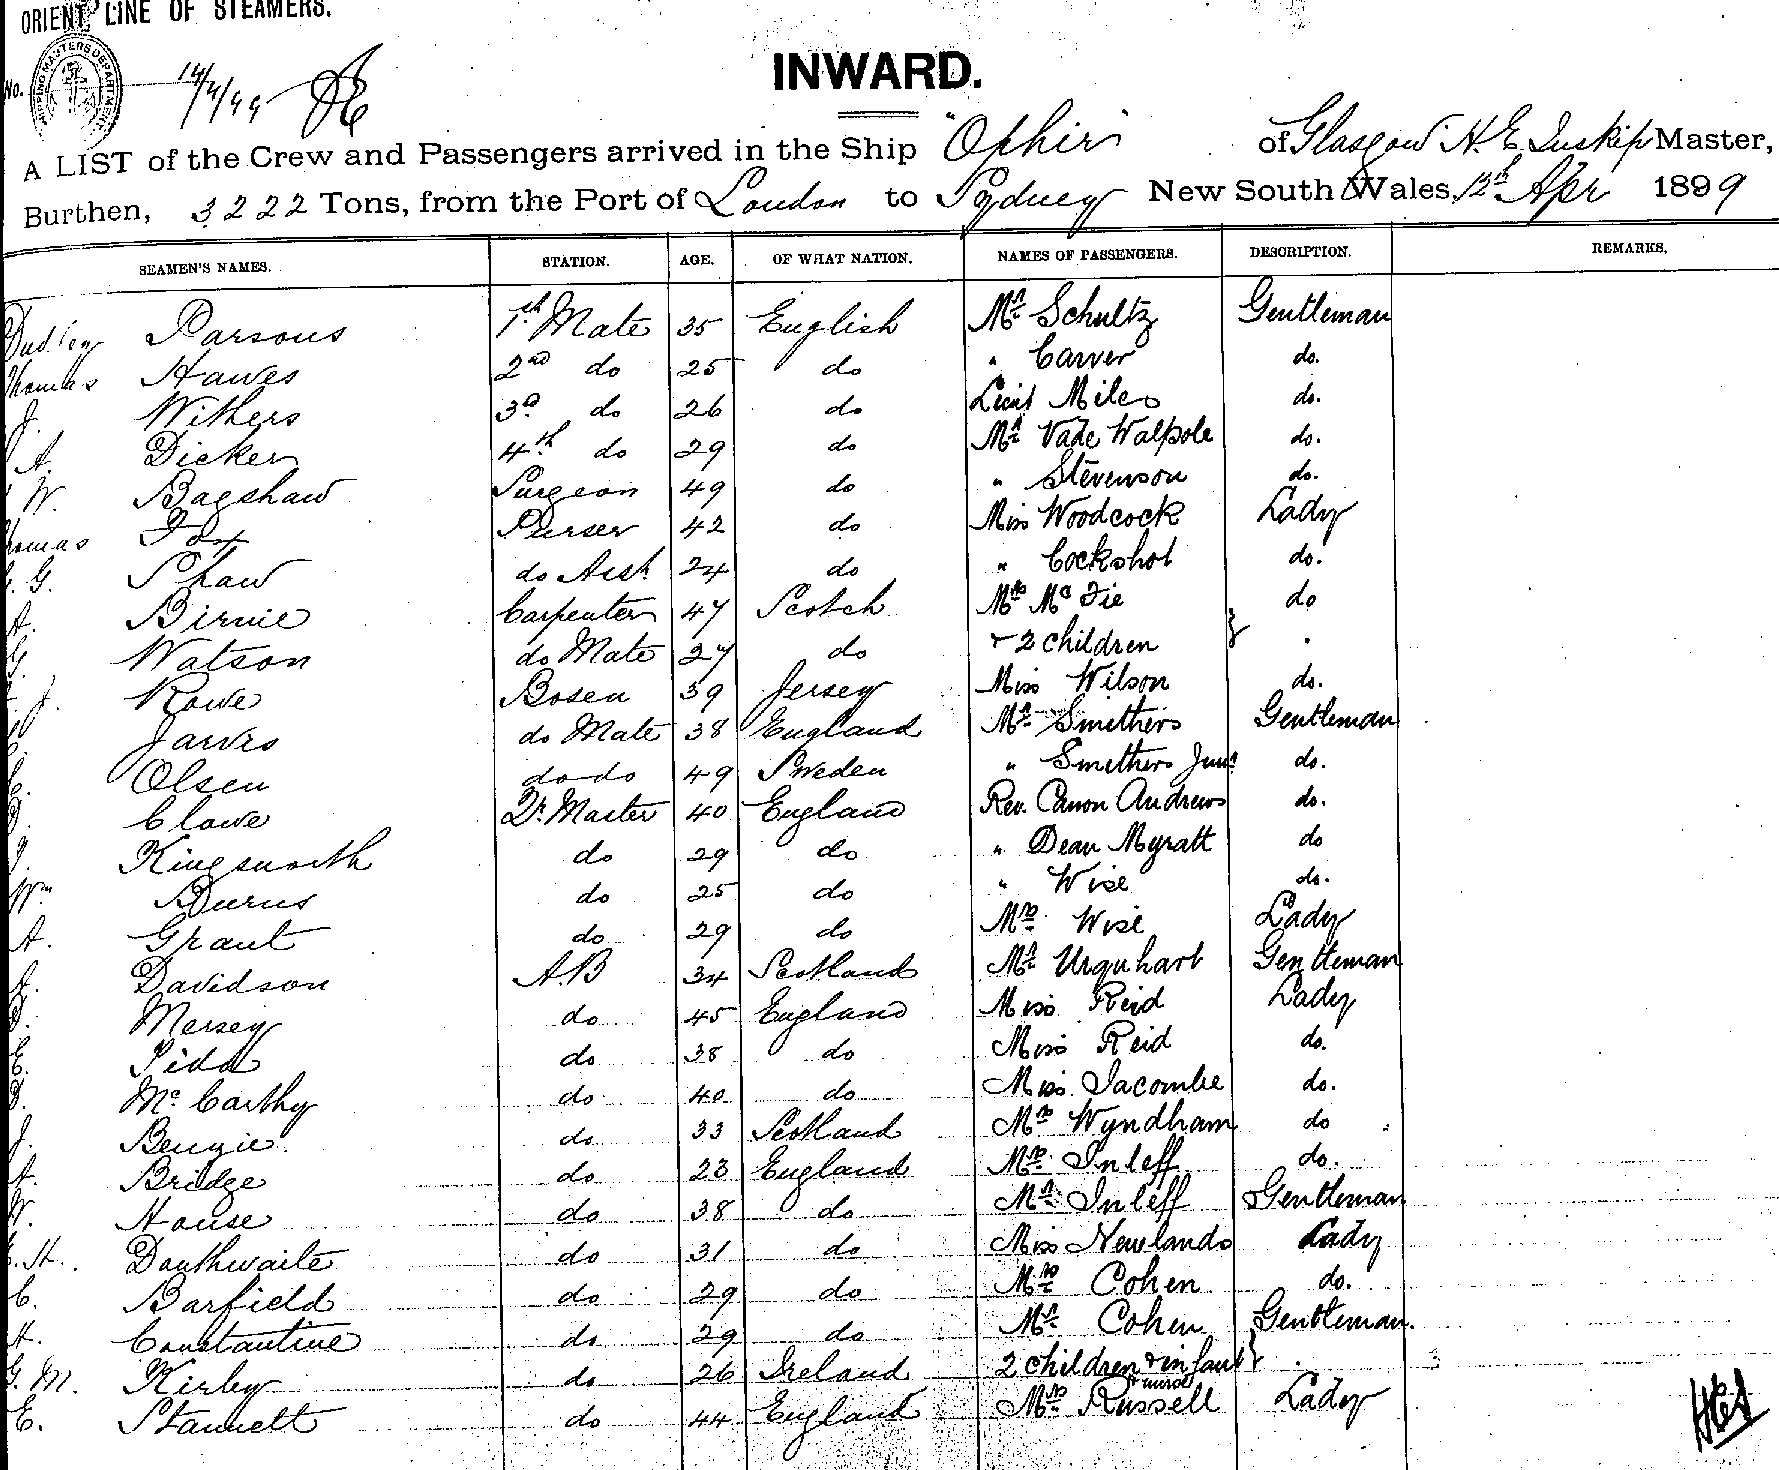 ORIENT LINE OF STEAMERS.
No. 14/4/99
INWARD.
A LIST of the Crew and Passengers arrived in the Ship "Ophir" of Glasgow H. E. Inskip Master,
Burthen, 3222 Tons, from the Port of London to Sydney New South Wales, 13th Apr 1899
SEAMEN'S NAMES. STATION. AGE. OF WHAT NATION. NAMES OF PASSENGERS. DESCRIPTION. REMARKS.
Dudley Parsons 1th Mate 35 English Mr Schultz Gentleman
Thomas Hawes 2nd do 25 do " Carver do.
J. Withers 3d do 26 do Lieut Miles do.
A. Dicker 4th do 29 do Mr Vade Walpole do.
W. Bagshaw Surgeon 49 do " Stevenson do.
Thomas Fox Purser 42 do Miss Woodcock Lady
G. Shaw do Asst 24 do " Cockshot do.
A. Birnie Carpenter 47 Scotch Mrs Mc Fie do
G. Watson do Mate 27 do + 2 children
J. Rowe Bosen 39 Jersey Miss Wilson do.
Jarvis do Mate 38 England Mr Smethers Gentleman
Olsen do do 49 Sweden " Smethers Junr do.
Clowe Qr. Master 40 England Rev. Canon Andrews do.
Kingsworth do 29 do " Dean Myratt do
Wm Burns do 25 do " Wise do.
A. Grant do 29 do Mrs Wise Lady
A. Davidson A.B 34 Scotland Mr Urquhart Gentleman
Mersey do 45 England Miss Reid Lady
E. Sidd do 38 do Miss Reid do.
Mc Carthy do 40 do Miss Sacombe do.
J. Benzie do 33 Scotland Mrs Wyndham do
A. Bridge do 23 England Mrs Inleff do.
W. House do 38 do Mr Inleff Gentleman
H. Douthwaite do 31 do Miss Newlands Lady
C. Barfield do 29 do Mrs Cohen do.
A. Constantine do 29 do Mr Cohen Gentleman.
G. M. Kirby do 26 Ireland 2 children + infant + nurse
E. Stannett do 44 England Mrs Russell Lady